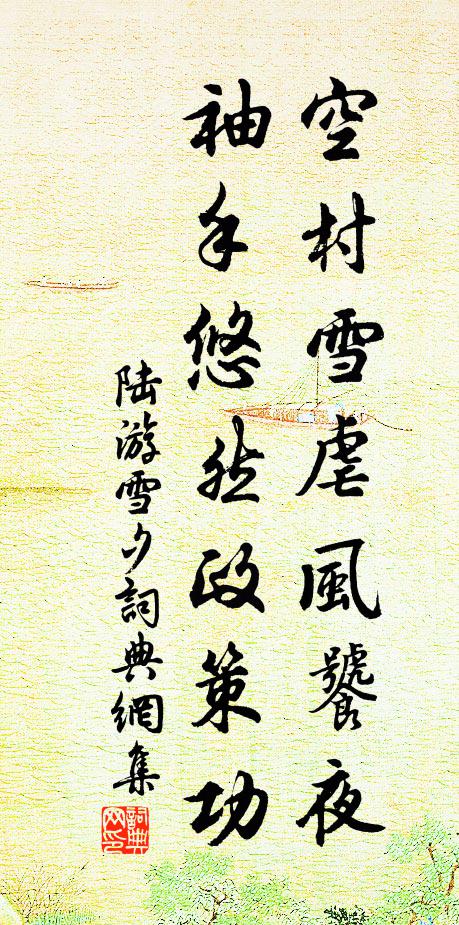 空村雪虐風饕夜
袖手悠然政策功
陸游雪夕詞典網集
詞典网印